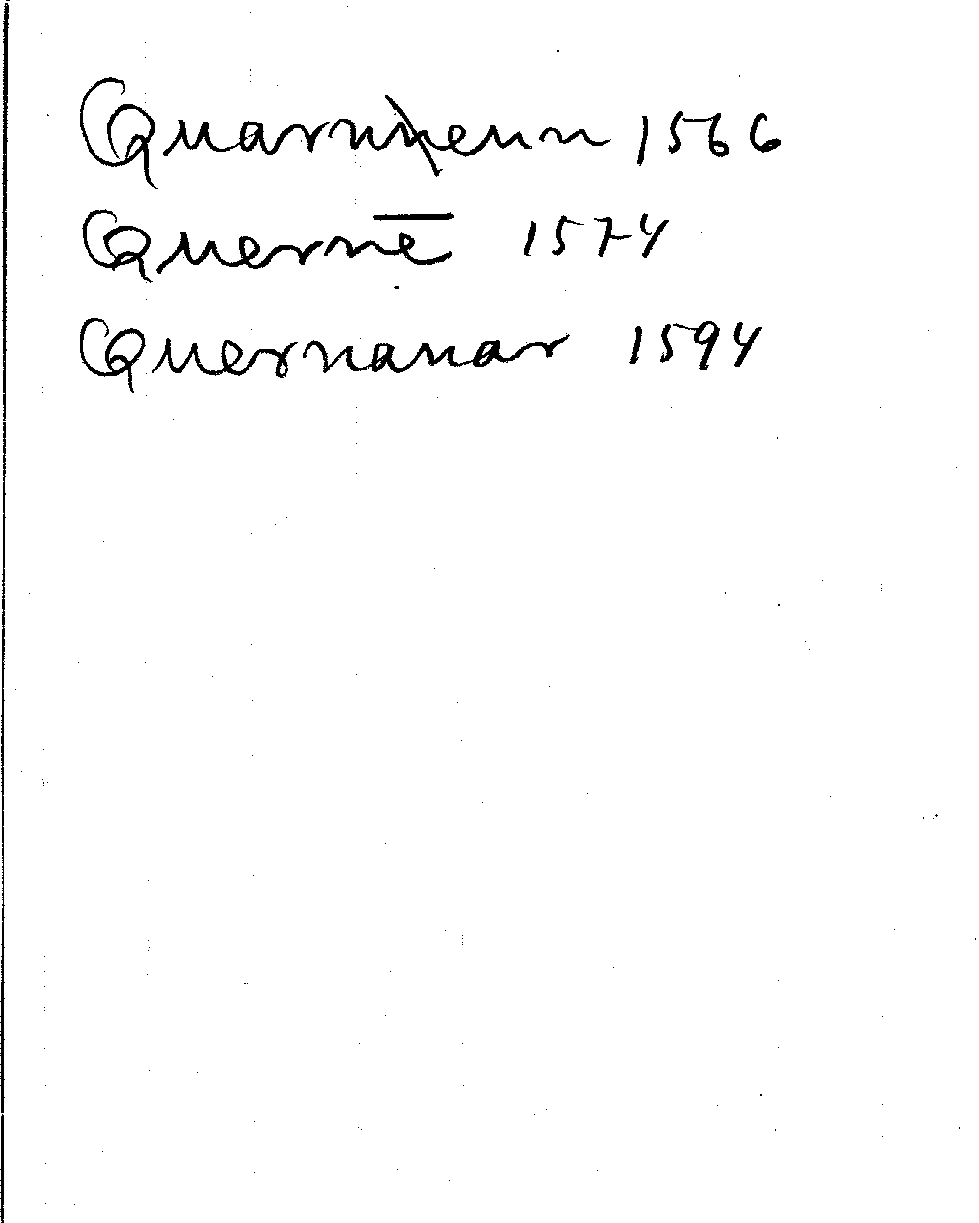 Quarnenn 1566
Quernē 1574
Quernanar 1594